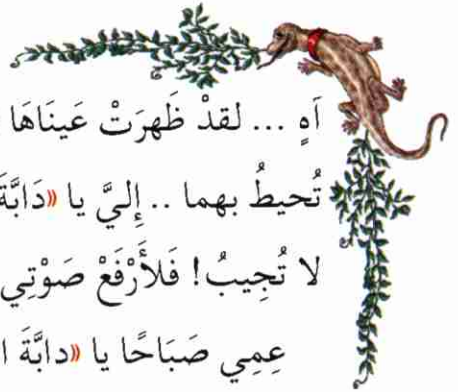 اَهٍ ... لقدْ ظَهرَتْ عَينَاهَا
تُحيطُ بهما .. إِليَّ يا «دَابَّةَ
لا تُجِيبُ! فَلأَرْفَعْ صَوْتِي
عِمِي صَبَاحًا يا «دابَّةَ ا